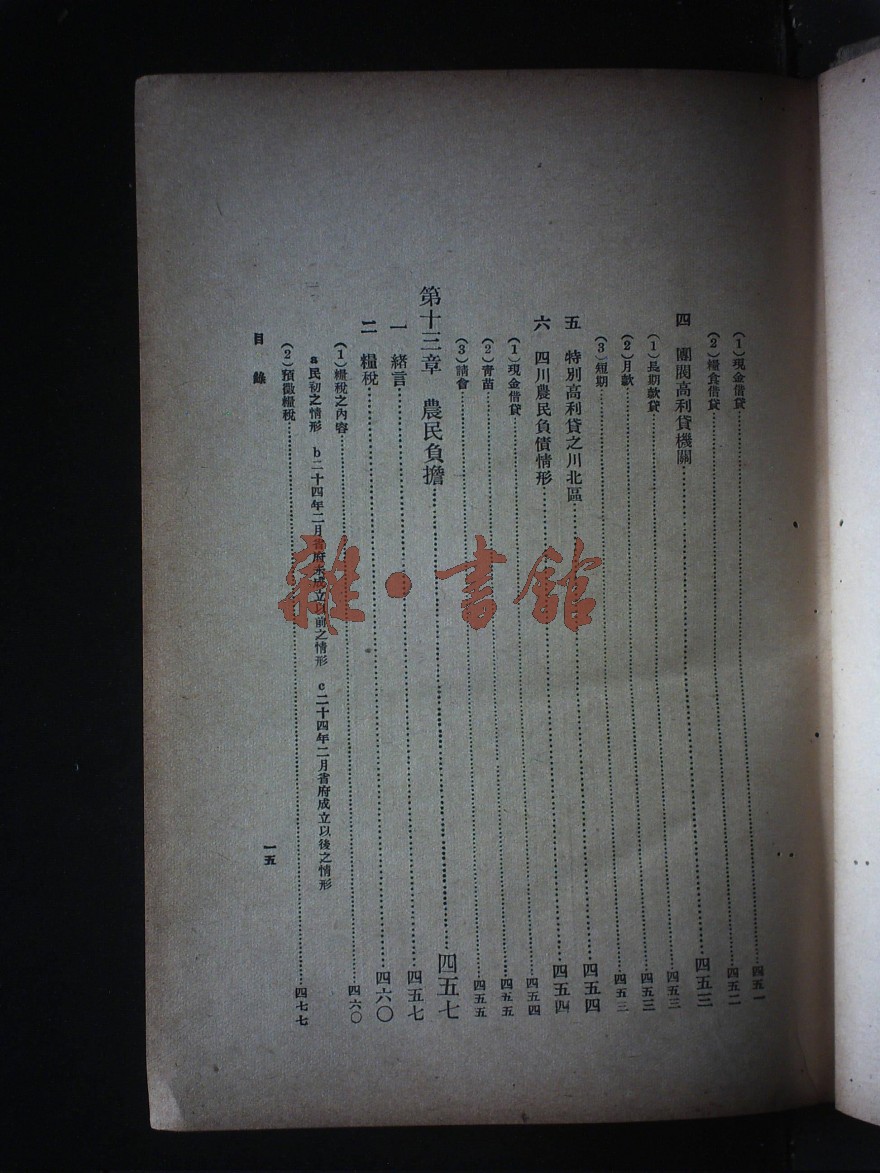 (1)現金借貸……四五一
(2)糧食借貸……四五二
四 團閥高利貸機關……四五三
(1)長期款貸……四五三
(2)月款……四五三
(3)短期……四五三
五 特別高利貸之川北區……四五四
六 四川農民負債情形……四五四
(1)現金借貸……四五四
(2)青苗……四五五
(3)請會……四五五
第十三章 農民負擔……四五七
一 緒言……四五七
二 糧稅……四六〇
(1)糧稅之內容……四六〇
a民初之情形 b二十四年二月省府未成立以前之情形 c二十四年二月省府成立以後之情形
(2)預徵糧稅……四七七
目錄
一五
雜·書館